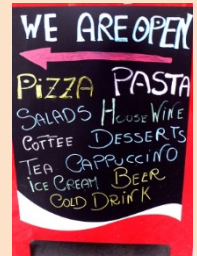 WE ARE OPEN
PIZZA PASTA
SALADS HOUSE WINE
COFFEE DESSERTS
TEA CAPPUCCINO
ICE CREAM BEER
COLD DRINK